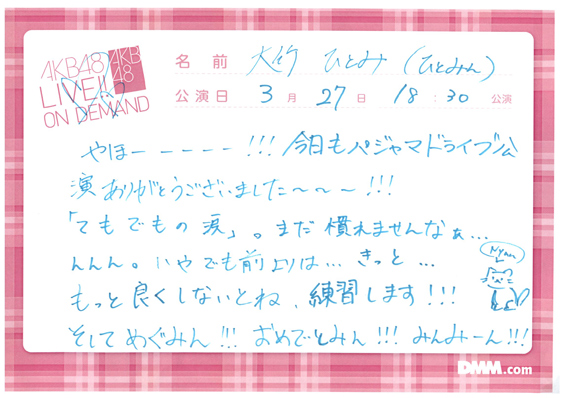 AKB48 AKB48
LIVE!!
ON DEMAND
名前 大竹 ひとみ (ひとみん)
公演日 3月27日 18:30 公演
やほーーーーー!!! 今日もパジャマドライブ公
演ありがとうございました〜〜〜!!!
「てもでもの涙」。まだ慣れませんなぁ...
んんん。いやでも前よりは... きっと...
Nyan
もっと良くしないとね、練習します!!!
そしてめぐみん!!! おめでとみん!!! みんみーん!!!
DMM.com